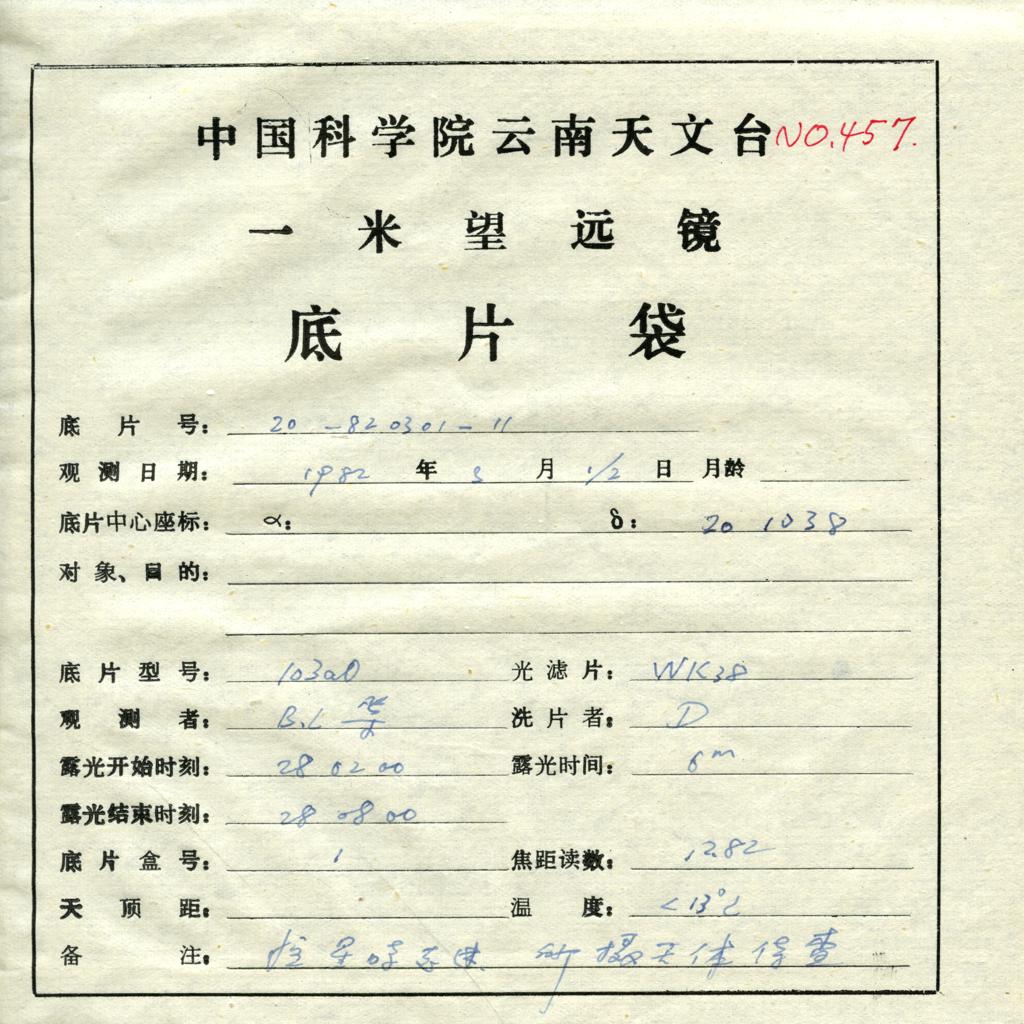 中国科学院云南天文台 NO.457.
一米望远镜
底片袋
底片号: 20-820301-11
观测日期: 1982 年 3 月 1/2 日 月龄
底片中心座标: α: δ: 20 1038
对象、目的:
底片型号: 103aO 光滤片: WK38
观测者: B.L 洗片者: D
露光开始时刻: 28 02 00 露光时间: 6m
露光结束时刻: 28 08 00
底片盒号: 1 焦距读数: 1282
天顶距: 温度: <13°C
备注: 所摄天体待查